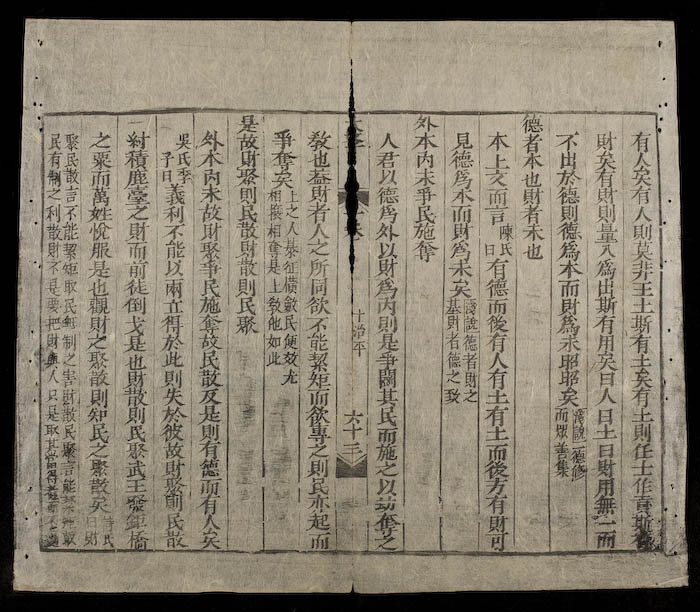 有人矣有人則莫非王土斯有土矣有土則任土作貢斯有
財矣有財則量入爲出斯有用矣曰人曰土曰財用無一而
不出於德則德爲本而財爲末昭昭矣 蒙說一德修而眾善集
德者本也財者末也
本上文而言 陳氏曰 有德而後有人有土有土而後方有財可
見德爲本而財爲末矣 德者財之基財者德之致
外本內末爭民施奪
人君以德爲外以財爲內則是爭鬭其民而施之以劫奪之
教也蓋財者人之所同欲不能絜矩而欲專之則民亦起而
爭奪矣 上之人暴征橫斂民便效尤相攘相奪是上教他如此
是故財聚則民散財散則民聚
外本內末故財聚爭民施奪故民散反是則有德而有人矣
吳氏季子曰 義利不能以兩立得於此則失於彼故財聚則民散
紂積鹿臺之財而前徒倒戈是也財散則民聚武王發鉅橋
之粟而萬姓悅服是也觀財之聚散則知民之聚散矣 氏曰財
聚民散言不能絜矩取民無制之害財散民聚言能絜矩取
民有制之利散財不是要把財與人只是取其當得
十治平
六十三